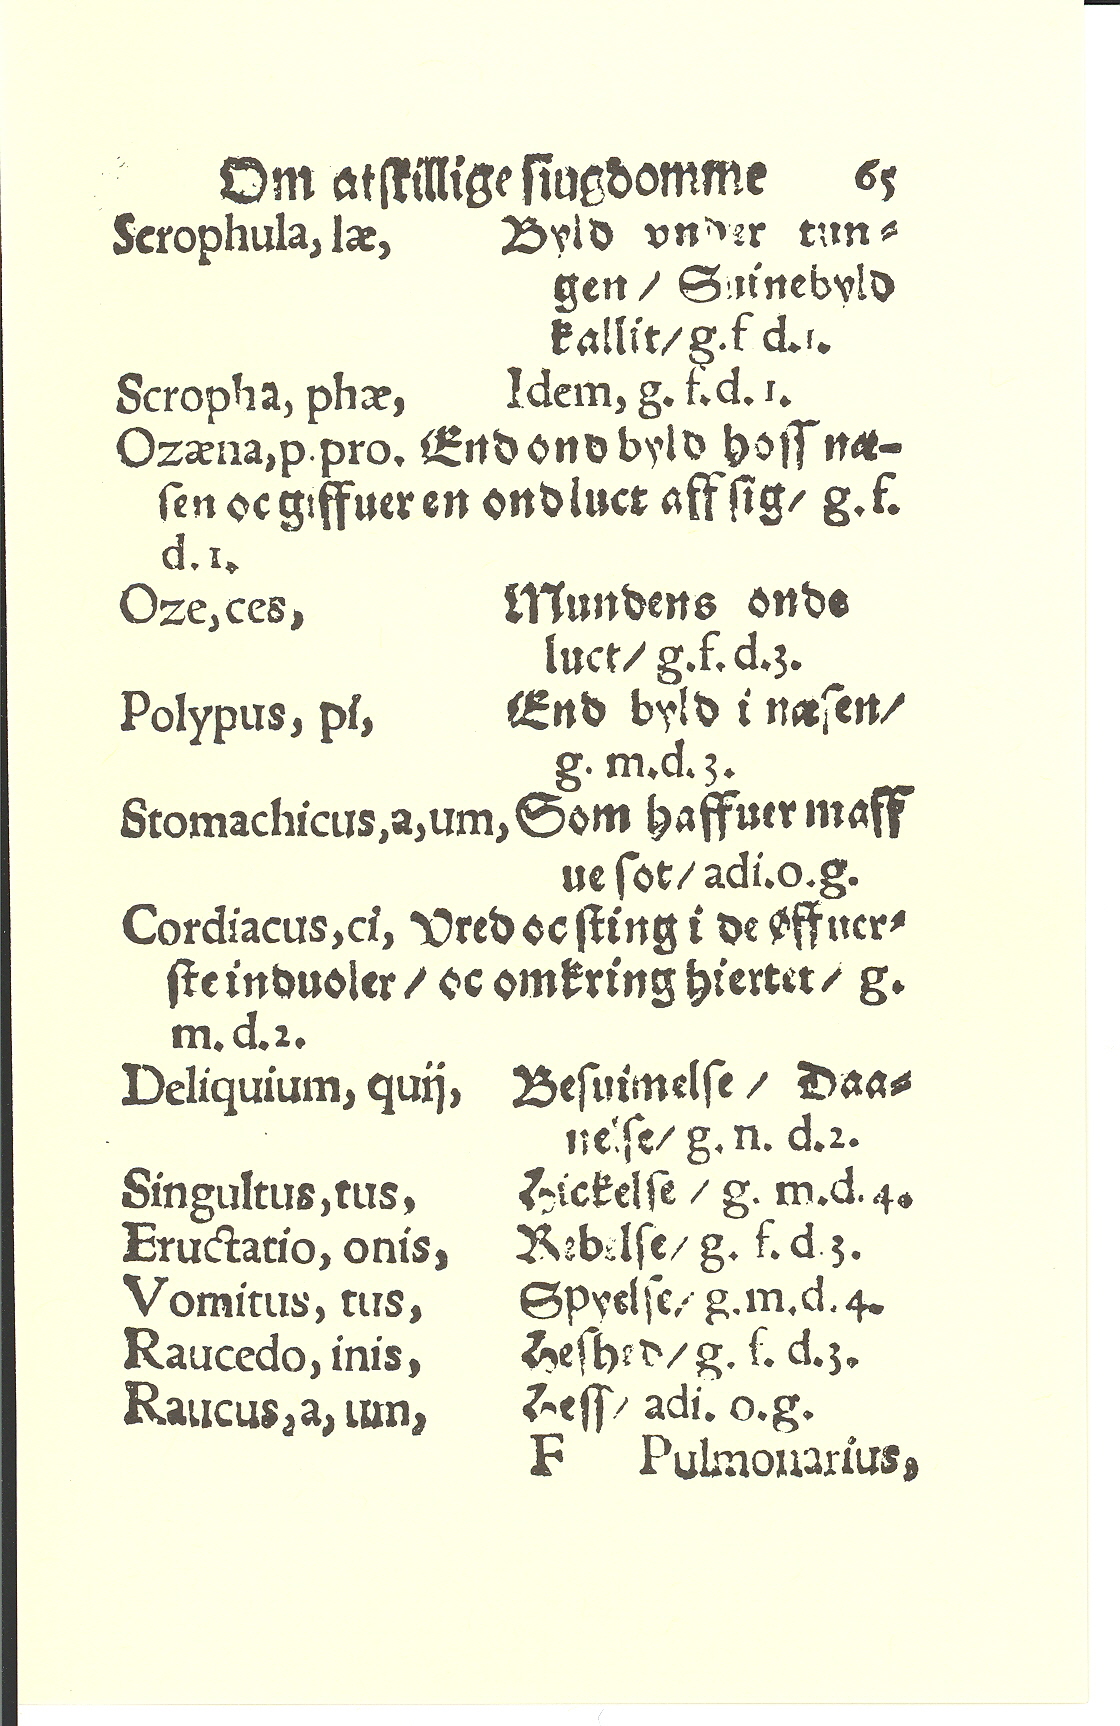 Om atskillige siugdomme 65
Scrophula, læ, Byld vnder tun-
gen / Suinebyld
kallit/ g. f d. 1.
Scropha, phæ, Idem, g. f. d. 1.
Ozæna, p. pro. End ond byld hoss næ-
sen oc giffuer en ond luct aff sig/ g. f.
d. 1.
Oze, ces, Mundens onde
luct/ g. f. d. 3.
Polypus, pi, End byld i næsen/
g. m. d. 3.
Stomachicus, a, um, Som haffuer maff
ue sot/ adi. o. g.
Cordiacus, ci, Vred oc sting i de øffuer-
ste induoler / oc omkring hiertet / g.
m. d. 2.
Deliquium, quij, Besuimelse / Daa-
nelse/ g. n. d. 2.
Singultus, tus, Hickelse / g. m. d. 4.
Eructatio, onis, Rebelse/ g. f. d. 3.
Vomitus, tus, Spyelse/ g. m. d. 4.
Raucedo, inis, Heshed/ g. f. d. 3.
Raucus, a, um, Hess/ adi. o. g.
F Pulmonarius,